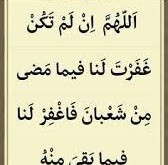 اَللّهُمَّ اِنْ لَمْ تَكُنْ
غَفَرْتَ لَنا فيما مَضى
مِنْ شَعْبانَ فَاغْفِرْ لَنا
فيما بَقِىَ مِنْهُ